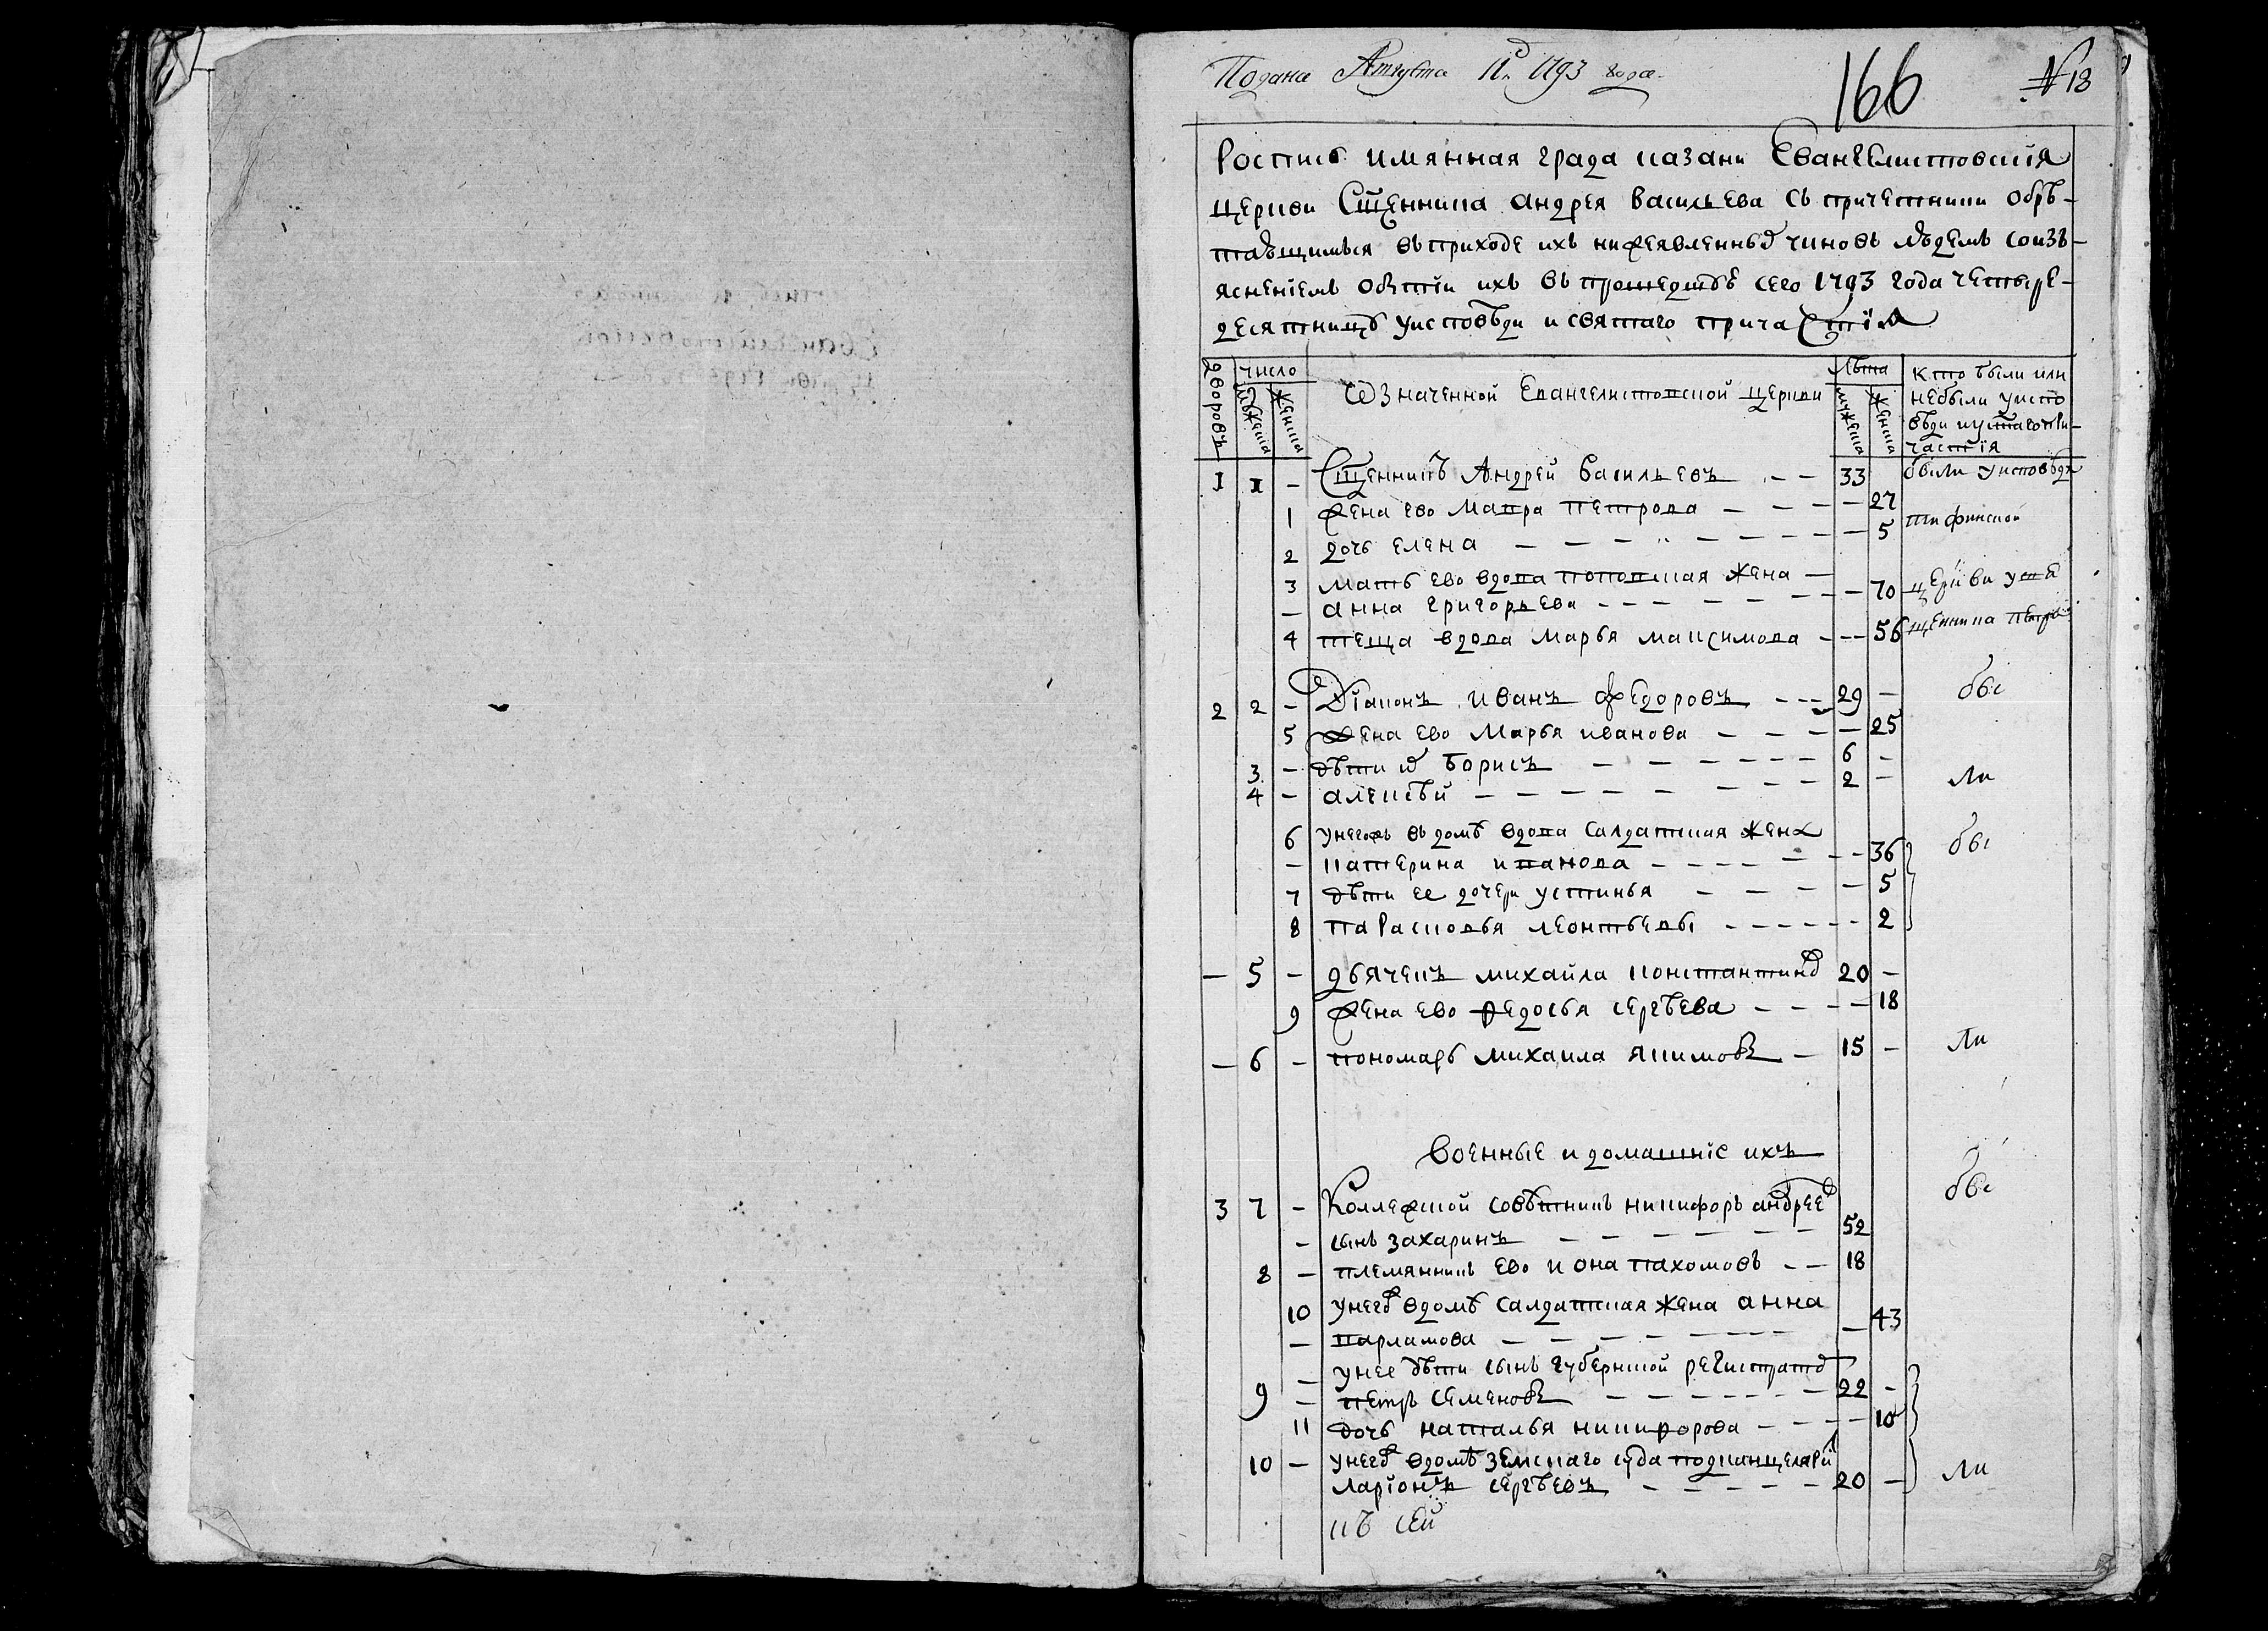 Подана Августа 11го 1793 года
166
№ 18
Роспись имянная града казани Евангелистовскія
церкви Сщенника андрея васильева съ причетники обрѣ-
тающимъся въ приходе ихъ нижеявленныхъ чиновъ людемъ соизъ-
ясненіемъ бытіи ихъ въ прошедшую сего 1793 года четыре-
десятницу уисповѣди и святаго причастія
Дворовъ
число
мужеска
женска
Wзначенной Евангелистовской церкви
Лѣта
мужеска
женска
кто были или
небыли уиспо
вѣди и у стаго при-
частія
1 1 - Сщенникъ Андрей Васильевъ - - 33 были уисповѣди
1 жена ево Мавра Петрова - - - - 27
2 дочь Елена - - - - - - - - 5 тифинской
3 мать ево вдова поповская жена -
- анна григорьева - - - - - - - - 70 церкви у свя
4 теща вдова Марья максимова - - - 56 щенника петра
2 2 - Діаконъ иванъ федоровъ - - - 29 - бы
5 жена ево Марья иванова - - - - - 25
3 - дѣти их борисъ - - - - - - 6 -
4 - алексѣй - - - - - - - - 2 - ли
6 унегожъ въ домѣ вдова салдатская жена
- катерина иванова - - - - - - - 36 бы
7 дѣти ее дочери устинья - - - - 5
8 парасковья леонтьевы - - - - - - 2
- 5 - дьячекъ михайла константинов 20 -
9 жена ево федосья сергѣева - - - - 18
- 6 - пономарь михаила якимовъ - 15 - ли
военные и домашніе ихъ
3 7 - Коллежской совѣтникъ никифоръ андреев бы
- сынъ захаринъ - - - - - - 52
8 - племянникъ ево иона пахомовъ - - 18
10 унегож вдомѣ салдатская жена анна
- варламова - - - - - - - - - 43
- унее дѣти сынъ губернской регистратор
9 - петръ семеновъ - - - - - - - 22 -
11 дочь наталья никифорова - - - - 10
10 - унегож вдомѣ земскаго суда подканцеляри
ларіонъ сергѣевъ - - - - - 20 - ли
къ сей